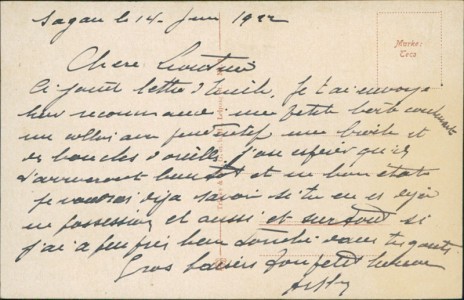 Sagan le 14 Juin 1922
Marke:
Teco
Chere
Ci joint lettre d'Emile, Je t'ai envoyé
hier recommandé une petite boite contenant
un collier avec pendentif une broche et
des boucles d'oreilles j'ose espérer qu'ils
t'arriveront bientôt et en bon état
je voudrais déja savoir si tu en es déjà
en possession et aussi et surtout si
j'ai a peu près bien touché dans tes gouts.
Gros baisers Ton petit